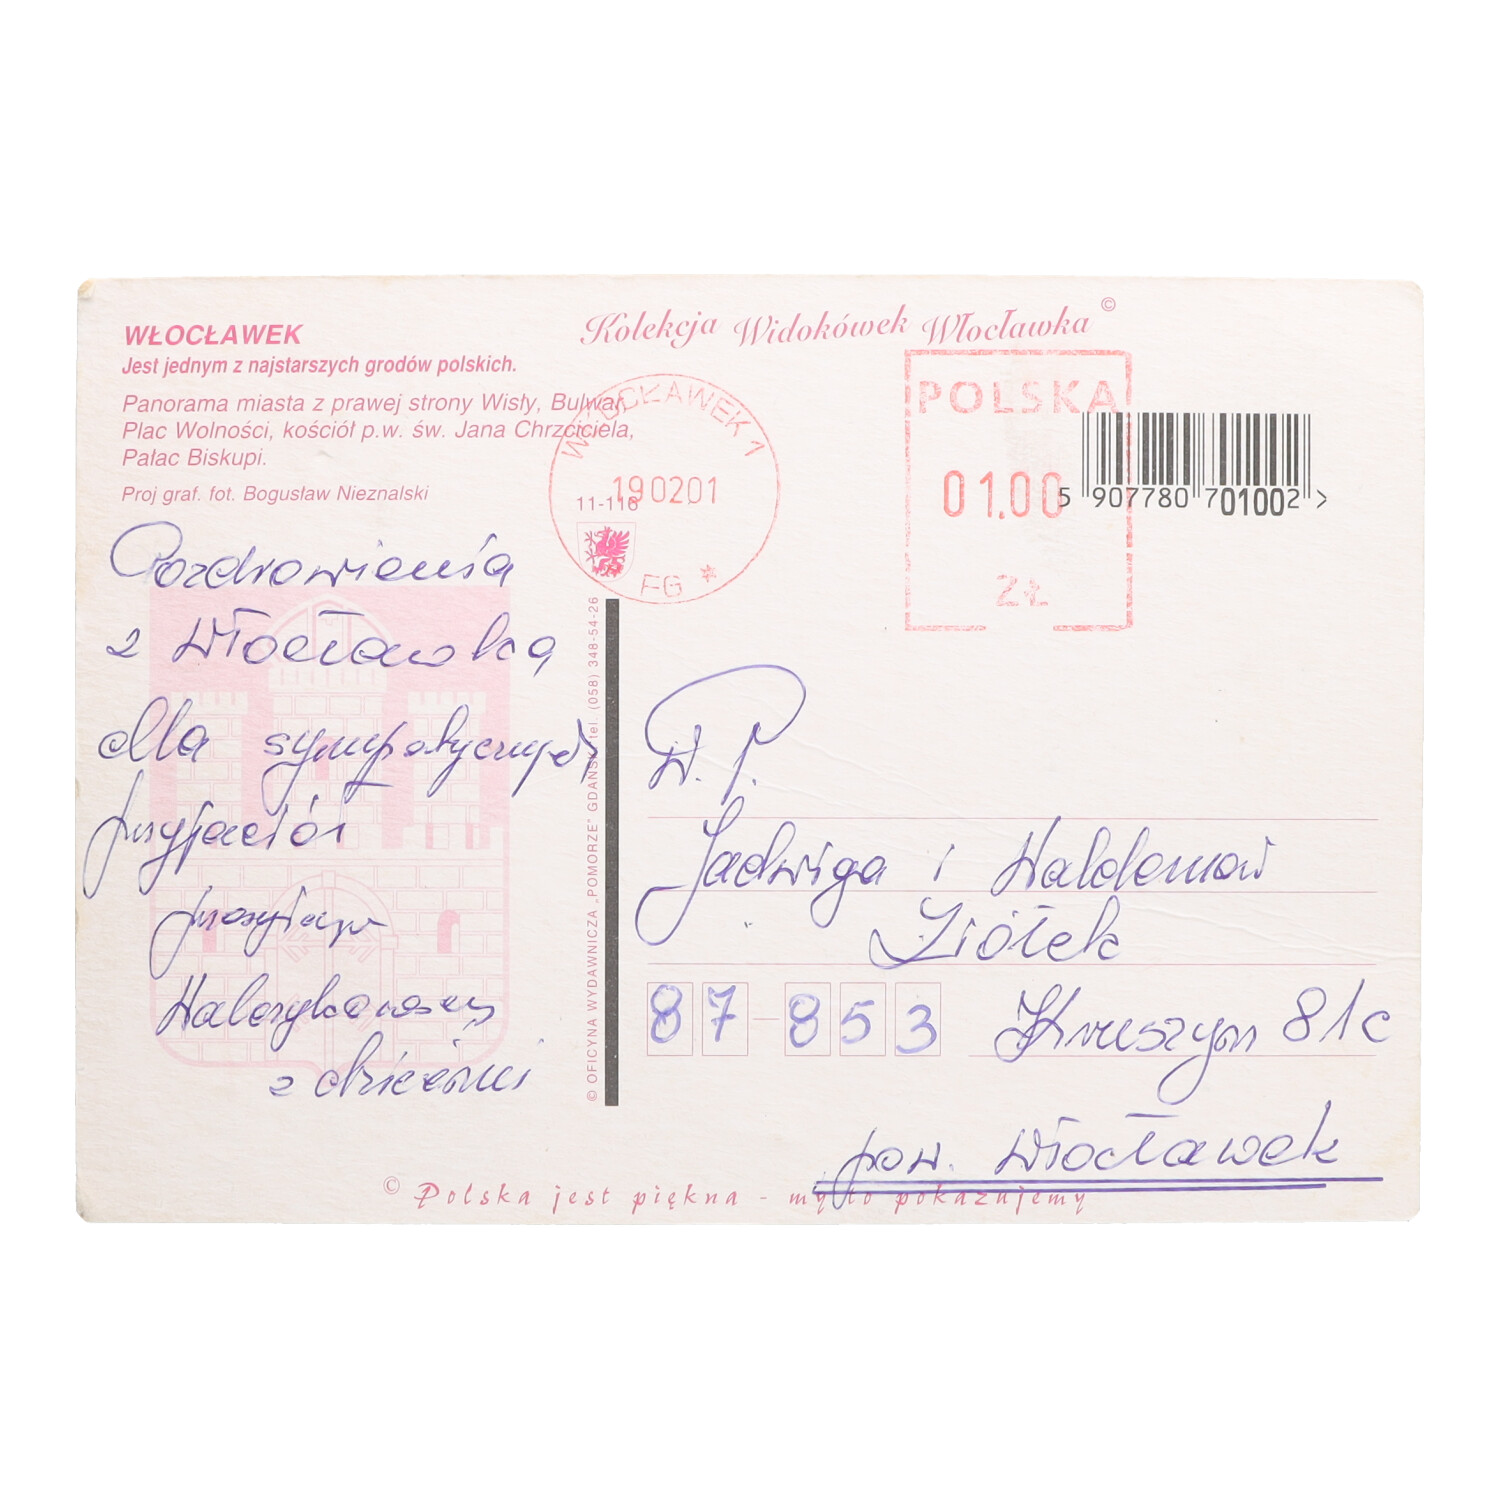 WŁOCŁAWEK
Jest jednym z najstarszych grodów polskich.
Panorama miasta z prawej strony Wisły, Bulwar,
Plac Wolności, kościół p.w. św. Jana Chrzciciela,
Pałac Biskupi.
Proj graf. fot. Bogusław Nieznalski
11-116
Kolekcja Widokówek Włocławka ©
WŁOCŁAWEK 1
190201
FG *
POLSKA
01.00
ZŁ
5 907780 701002 >
Pozdrowienia
z Włocławka
dla sympatycznych
przyjaciół
przesyłają
z dziećmi
© OFICYNA WYDAWNICZA „POMORZE" GDAŃSK, tel. (058) 348-54-26
W. P.
Jadwiga i Waldemar
Ziółek
87-853 Kruszyn 81c
pow. Włocławek
© Polska jest piękna - my to pokazujemy